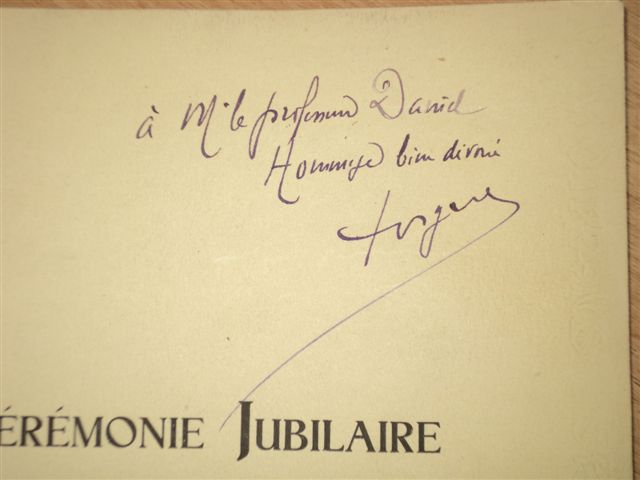 à Mr le professeur David
Hommage bien dévoué
Forgue
ÉRÉMONIE JUBILAIRE